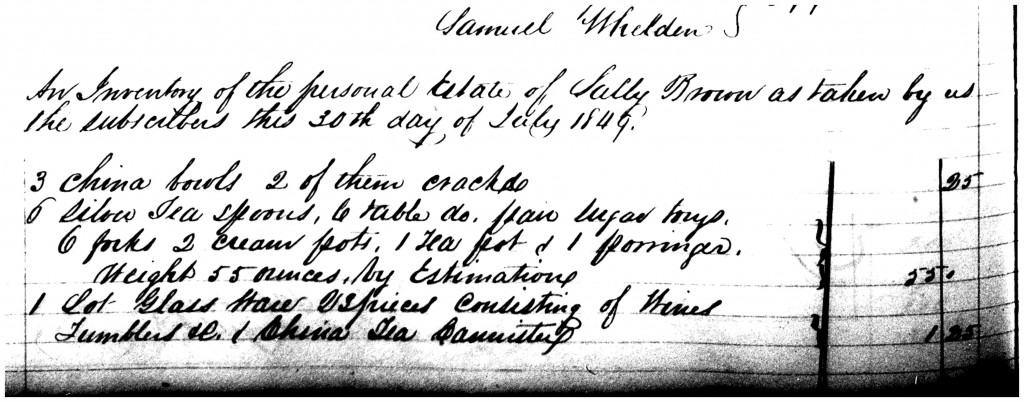 Samuel Whelden
An Inventory of the personal Estate of Sally Brown as taken by us
the subscribers this 30th day of July 1849.
3 China bowls 2 of them crackd 25
6 Silver Tea spoons, 6 table do. pair sugar tongs.
6 forks 2 cream pots. 1 Tea pot & 1 porringer.
Weight 55 ounces, by Estimation 55.
1 Lot Glass Ware 23 pieces Consisting of Wines
Tumblers &c. 1 China Tea Cannister 1 25